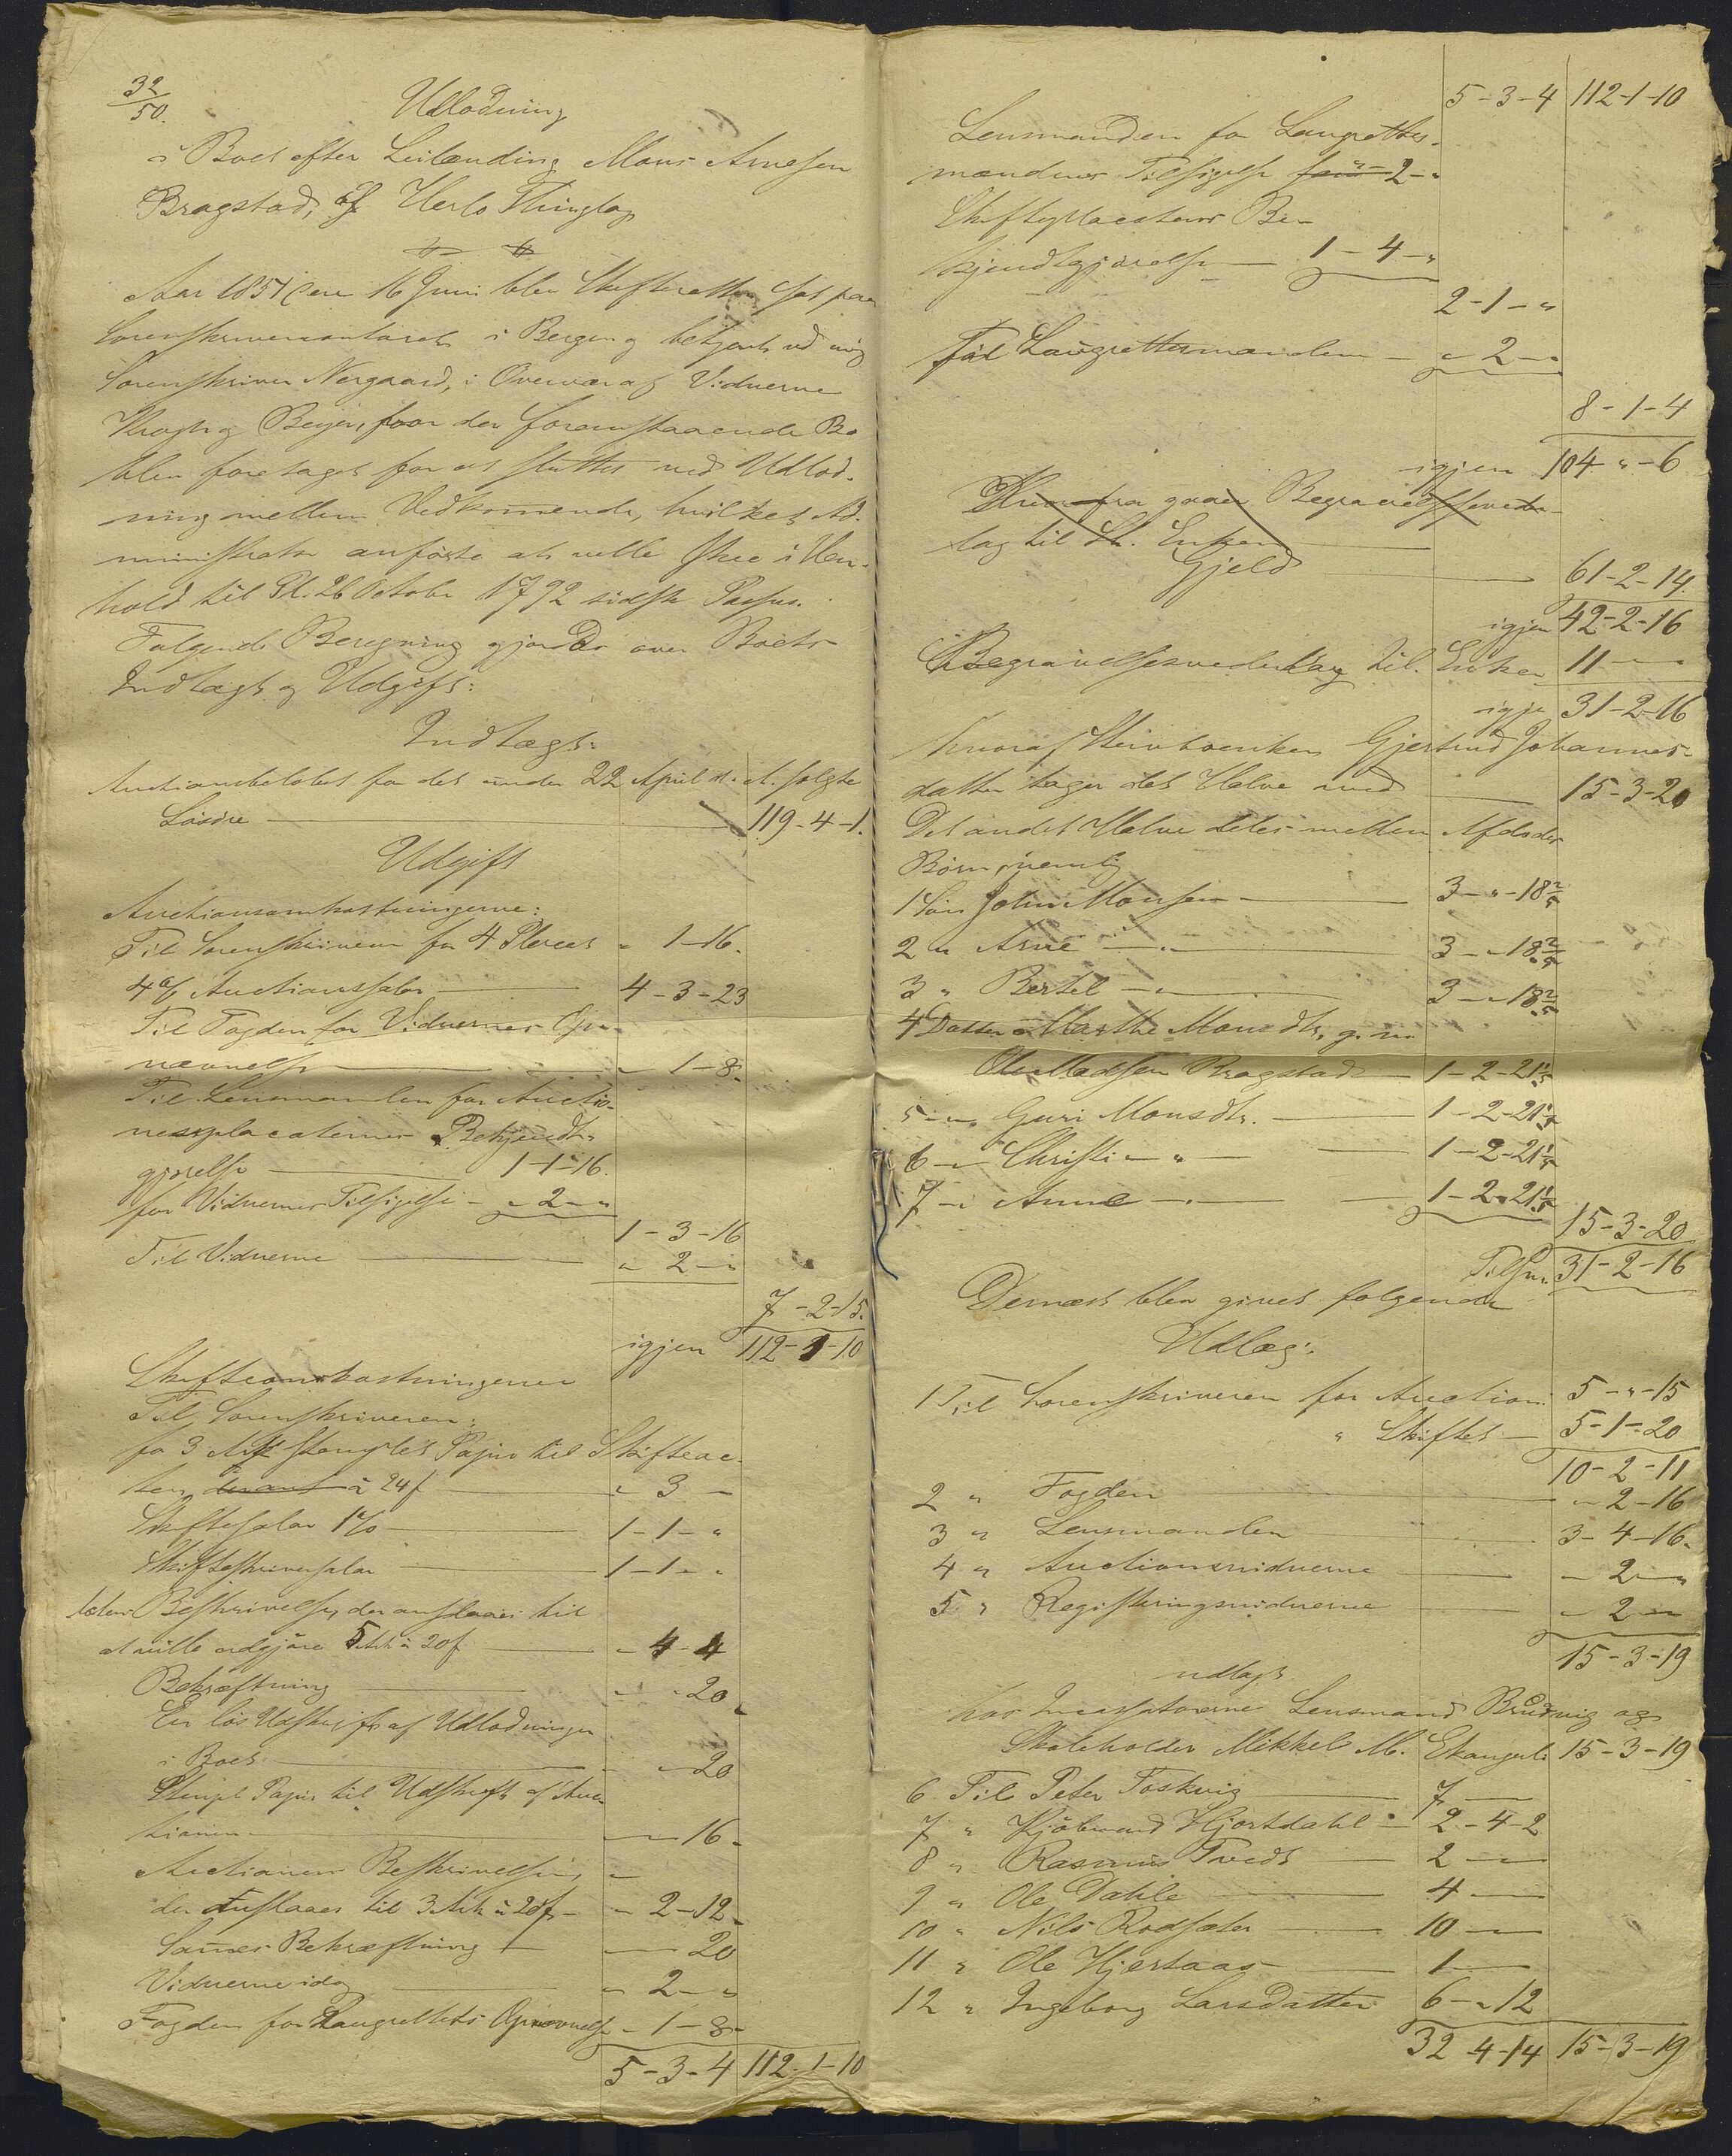 32
50.
Udlodning
i Boet efter Leilænding Mons Arnesen
Bragstad, af Herlo Thinglag
Aar 1851 den 16 Juni blev Skifteretten sat paa
Sorenskrivercontoret i Bergen og betjent ved mig
Sorenskriver Norgaard, i Overvær af Vidnerne
Krogh og Beyer, hvor det foranstaaende Bo
blev foretaget for at sluttes med Udlod-
ning mellem Vedkommende, hvilket Ad-
ministrator anførte at ville skee i Hen-
hold til Pl. 26 October 1792 sidste Passus.
Følgende Beregning gjordes over Boets
Indtægt og Udgift:
Indtægt:
Auctionsbeløbet for det under 22 April d. A. solgte
Løsøre 119-4-1.
Udgift
Auctionsomkostningerne:
Til Sorenskriveren for 4 Placater " 1-16.
4 % Auctionssalar 4-3-23
Til Fogden for Vidnernes Op-
nævnelse " 1-8.
Til Lensmanden for Auctio-
nesplacaternes Bekjendt-
gjørelse 1-1-16.
for Vidnernes Tilsigelse " 2 - "
1-3-16
Til Vidnerne " 2 - "
7-2-15.
igjen 112-1-10
Skifteomkostningerne
Til Sorenskriveren:
for 3 Ark stemplet Papir til Skifteac-
ten à 24 s " 3 -
Skiftesalar 1 % 1-1- "
Skifteskriversalar 1-1- "
Actens Beskrivelse, der anslaaes til
at ville udgjøre 5 Ark à 20 s " 4-4
Bekræftning " " 20
En løs Udskrift af Udlodningen
i Boet " 20
Stempl. Papir til Udskrift af Auc-
tionen " 16 -
Auctionens Beskrivelse,
der anslaaes til 3 Ark à 20 s " 2-12 -
Sammes Bekræftning 20
Vidnerne idag " 2 - "
Fogden for Laugrettets Opnævnelse " 1-8 -
5-3-4 112-1-10
5-3-4 112-1-10
Lensmanden for Laugrettes-
mændenes Tilsigelse " 2 - "
Skifteplacatens Be-
kjendtgjørelse 1-4- "
2-1- "
Til Laugrettesmændene " 2 - "
8-1-4
igjen 104 " -6
Begravelsesveder-
lag til Enken
Gjeld 61-2-14.
igjen 42-2-16
Begravelsesvederlag til Enken 11 - "
igjen 31-2-16
hvoraf Stervboenken Gjertrud Johannes-
datter tager det Halve med 15-3-20
Det andet Halve deles mellem Afdødes
Børn, nemlig
1 Søn John Monsen 3 - " -18 2/5
2 " Arne " 3 - " 18 2/5
3 " Bertel " 3 - " 18 2/5
4 Datter Marthe Monsdtr, g. m.
Ole Madsen Bragstad 1-2-21 1/5
5 " Guri Monsdtr. 1-2-21 1/5
6 " Christi " " 1-2-21 1/5
7 " Anne " 1-2-21 1/5
15-3-20
Tilsm. 31-2-16
Dernæst blev givet følgende
Udlæg:
1 Til Sorenskriveren for Auction 5 - " -15
" Skiftet 5-1-20
10-2-11
2 " Fogden " 2-16
3 " Lensmanden 3-4-16.
4 " Auctionsvidnerne " 2 - "
5 " Registeringsvidnerne " 2 - "
15-3-19
udlagt
hos Incassatorerne Lensmand Brudvig og
Skoleholder Mikkel M. Ekanger 15-3-19
6 Til Peter Toskvig 7 -
7 " Kjøbmand Hjortdahl 2-4-2
8 " Rasmus Tvedt 2 -
9 " Ole Dahle 4 -
10 " Nils Rodsæter 10 -
11 " Ole Hjertaas 1
12 " Ingeborg Larsdatter 6 - " 12
32 4-14 15-3-19